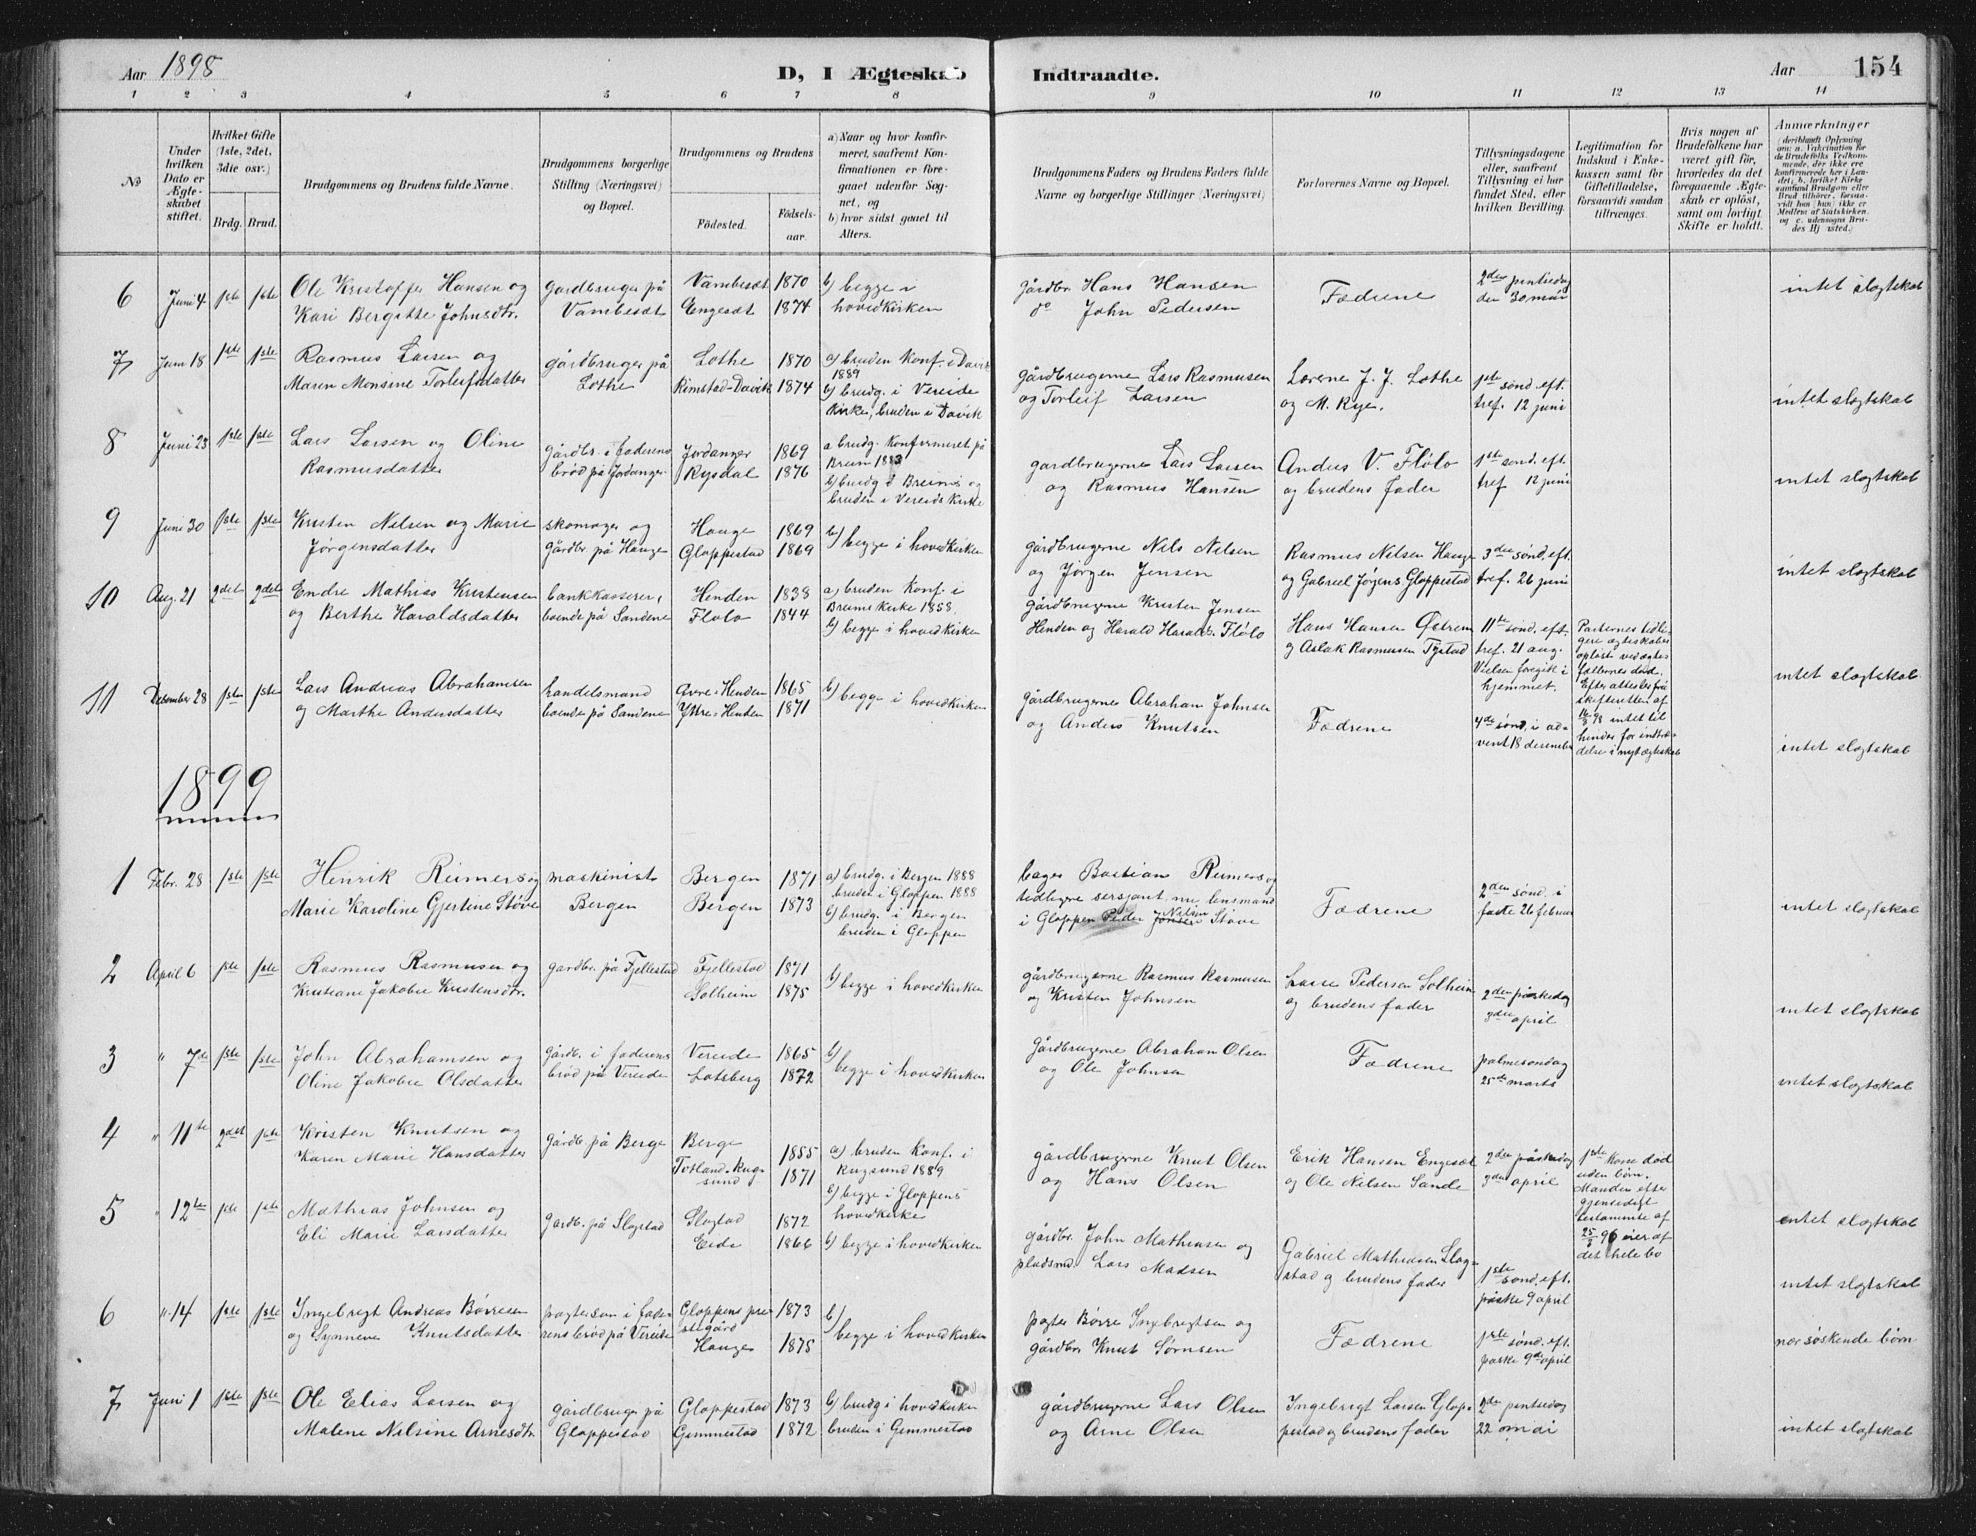 Aar 1898
D, I Ægteskab Indtraadte.
Aar 154
1 2 3 4 5 6 7 8 9 10 11 12 13 14
No
Under hvilken Dato er Ægteskabet stiftet.
Hvilket Gifte (1ste, 2det, 3die osv.)
Brdg. Brud.
Brudgommens og Brudens fulde Navne.
Brudgommens borgerlige Stilling (Næringsvei) og Bopæl.
Brudgommens og Brudens
Födested.
Födsels-aar.
a) Naar og hvor konfirmeret, saafremt Konfirmationen er foregaaet udenfor Sognet, og
b) hvor sidst gaaet til Alters.
Brudgommens Faders og Brudens Faders fulde Navne og borgerlige Stillinger (Næringsvei)
Forlovernes Navne og Bopæl.
Tillysningsdagene eller, saafremt Tillysning ei har fundet Sted, efter hvilken Bevilling.
Legitimation for Indskud i Enkekassen samt for Giftetilladelse, forsaavidt saadan tiltrænges.
Hvis nogen af Brudefolkene har været gift før, hvorledes da det foregaaende Ægteskab er oplöst, samt om lovligt Skifte er holdt.
Anmærkninger
6 Juni 4 1ste 1ste Ole Kristoffer Hansen og gardbruger på Vambesæt 1870 b) begge i
Kari Bergitte Johnsdtr. Vambesæt Engesæt 1874 hovedkirken
gårdbr. Hans Hansen
do John Pedersen
Fædrene
2den pintsedag
den 30 mai
intet slægtskab
7 Juni 18 1ste 1ste Rasmus Larsen og gårdbruger på Lothe 1870 a) bruden konf. i Davik
Maren Monsine Torleifsdatter Lothe Rimstad-Davik 1874 1889
b) brudg. i Vereide
kirke, bruden i Davik
gårdbrugerne Lars Rasmusen
og Torleif Larsen
Lærerne J. J. Lothe
og M. Rye.
1ste sønd. eft.
tref. 12 juni
intet slægtskab
8 Juni 23 1ste 1ste Lars Larsen og Oline gårdbr. i faderens Jordanger 1869 a brudg. konfirmeret på
Rasmusdatter brød på Jordanger Rysdal 1876 Breim 1883
b) brudg i Breims og
bruden i Vereids kirke
gardbrugerne Lars Larsen
og Rasmus Hansen
Anders V. Flølo
og brudens fader
1ste sønd. eft.
tref 12 juni
intet slægtskab
9 Juni 30 1ste 1ste Kristen Nilsen og Marie skomager og Hauge 1869 b)
Jørgensdatter gårdbr. på Hauge Gloppestad 1869 begge i hovedkirken
gårdbrugerne Nils Nilsen
og Jørgen Jensen
Rasmus Nilsen Hauge
og Gabriel Jørgens. Gloppestad
3die sønd. eft.
tref. 26 juni
intet slægtskab
10 Aug. 21 2det 2det Endre Mathias Kristensen bankkasserer, Henden 1838 a) bruden konf. i
og Berthe Haraldsdatter boende på Sandene Flølo 1844 Breims kirke 1858.
b) begge i hovedkirken
gårdbrugerne Kristen Jensen
Henden og Harald Haralds. Flølo
Hans Hansen Østrem
og Aslak Rasmusen Tystad
11te sønd. eft.
tref. 21 aug.
Vielsen foregik i
hjemmet.
Parternes tidligere ægteskaber
opløst ved ægtefællernes død.
Efter attester fra
skifteretten af
98 intet til
hinder for indtrædelse i nyt ægteskab
intet slægtskab
11 December 28 1ste 1ste Lars Andreas Abrahamsen handelsmand Øvre-Henden 1865 b) begge i hovedkirken
og Marthe Andersdatter boende på Sandene Ytre-Henden 1871
gårdbrugerne Abraham Johnsen
og Anders Knutsen
Fædrene
4de sønd. i advent 18 december
intet slægtskab
1899
1 Febr. 28 1ste 1ste Henrik Reimers og maskinist Bergen 1871 a) brudg. i Bergen 1888
Marie Karoline Gjertine Støve Bergen Bergen 1873 bruden i Gloppen 1888
b) brudg. i Bergen
bruden i Gloppen
bager Bastian Reimers og
tidligere sersjant, nu lensmand
i Gloppen Peder Jonsen Nilsen Støve
Fædrene
2den sønd. i
faste 26 februar
intet slægtskab
2 April 6 1ste 1ste Rasmus Rasmusen og gardbr. på Fjellestad Fjellestad 1871
Kristiane Jakobie Kristensdtr. Solheim 1875 b) begge i hovedkirken
gårdbrugerne Rasmus Rasmusen
og Kristen Johnsen
Lasse Pedersen Solheim
og brudens fader
2den påskedag
3die april
intet slægtskab
3 " 7de 1ste 1ste John Abrahamsen og gårdb. i faderens Vereide 1865 b)
Oline Jakobie Olsdatter brød på Vereide Lotsberg 1872 begge i hovedkirken
Gårdbrugerne Abraham Olsen
og Ole Johnsen
Fædrene
palmesøndag
25de marts
intet slægtskab
4 " 11te 2det 1ste Kristen Knutsen og gårdb. på Berge Berge 1855 a) bruden konf. i
Karen Marie Hansdatter Totland-Rugsund 1871 Rugsund 1889
b) begge i Gloppens
hovedkirke
gårdbrugerne Knut Olsen
og Hans Olsen
Erik Hansen Engesæt
og Ole Nilsen Sande
2den påskedag
3die april
1ste kone død
uden børn.
Manden efter
gjensidigt
testamente af
96 eier af
det hele bo
intet slægtskab
5 " 12te 1ste 1ste Mathias Johnsen og gardb. på Slogstad Slogtad 1872
Eli Marie Larsdatter Eide 1866 b) begge i hovedkirken
gårdbr. John Mathiasen og
pladsmd. Lars Madsen
Gabriel Mathiasen Slogstad og brudens fader
1ste sønd. eft.
påske 9 april
intet slægtskab
6 " 14 1ste 1ste Ingebrigt Andreas Børresen pagtersøn i faderens brød på Vereide Gloppens prestegård 1873 b)
og Synneve Knutsdatter Hauge 1875 begge i hovedkirken
pagter Børre Ingebrigtsen og
gårdbr Knut Sørnsen
Fædrene
1ste sønd. eft.
påske 9de april
nær søskende børn
7 Juni 1 1ste 1ste Ole Elias Larsen og gårdbruger på Gloppestad 1873 b) brudg i hovedkirken
Malene Nilsine Arnesdtr. Gloppestad Gimmestad 1872 bruden i Gimmestad
gårdbrugerne Lars Olsen
og Arne Olsen
Ingebrigt Larsen Gloppestad og brudens fader
2den pintsedag
22 mai
intet slægtskab